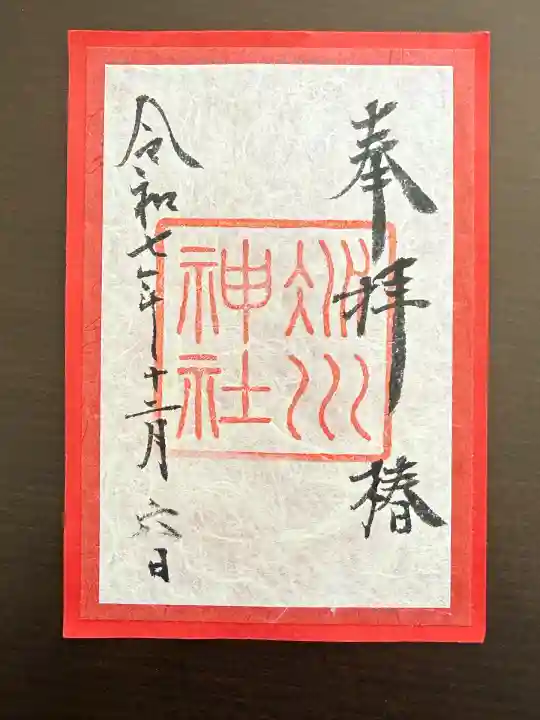 奉拝 椿
神社
令和七年十二月六日